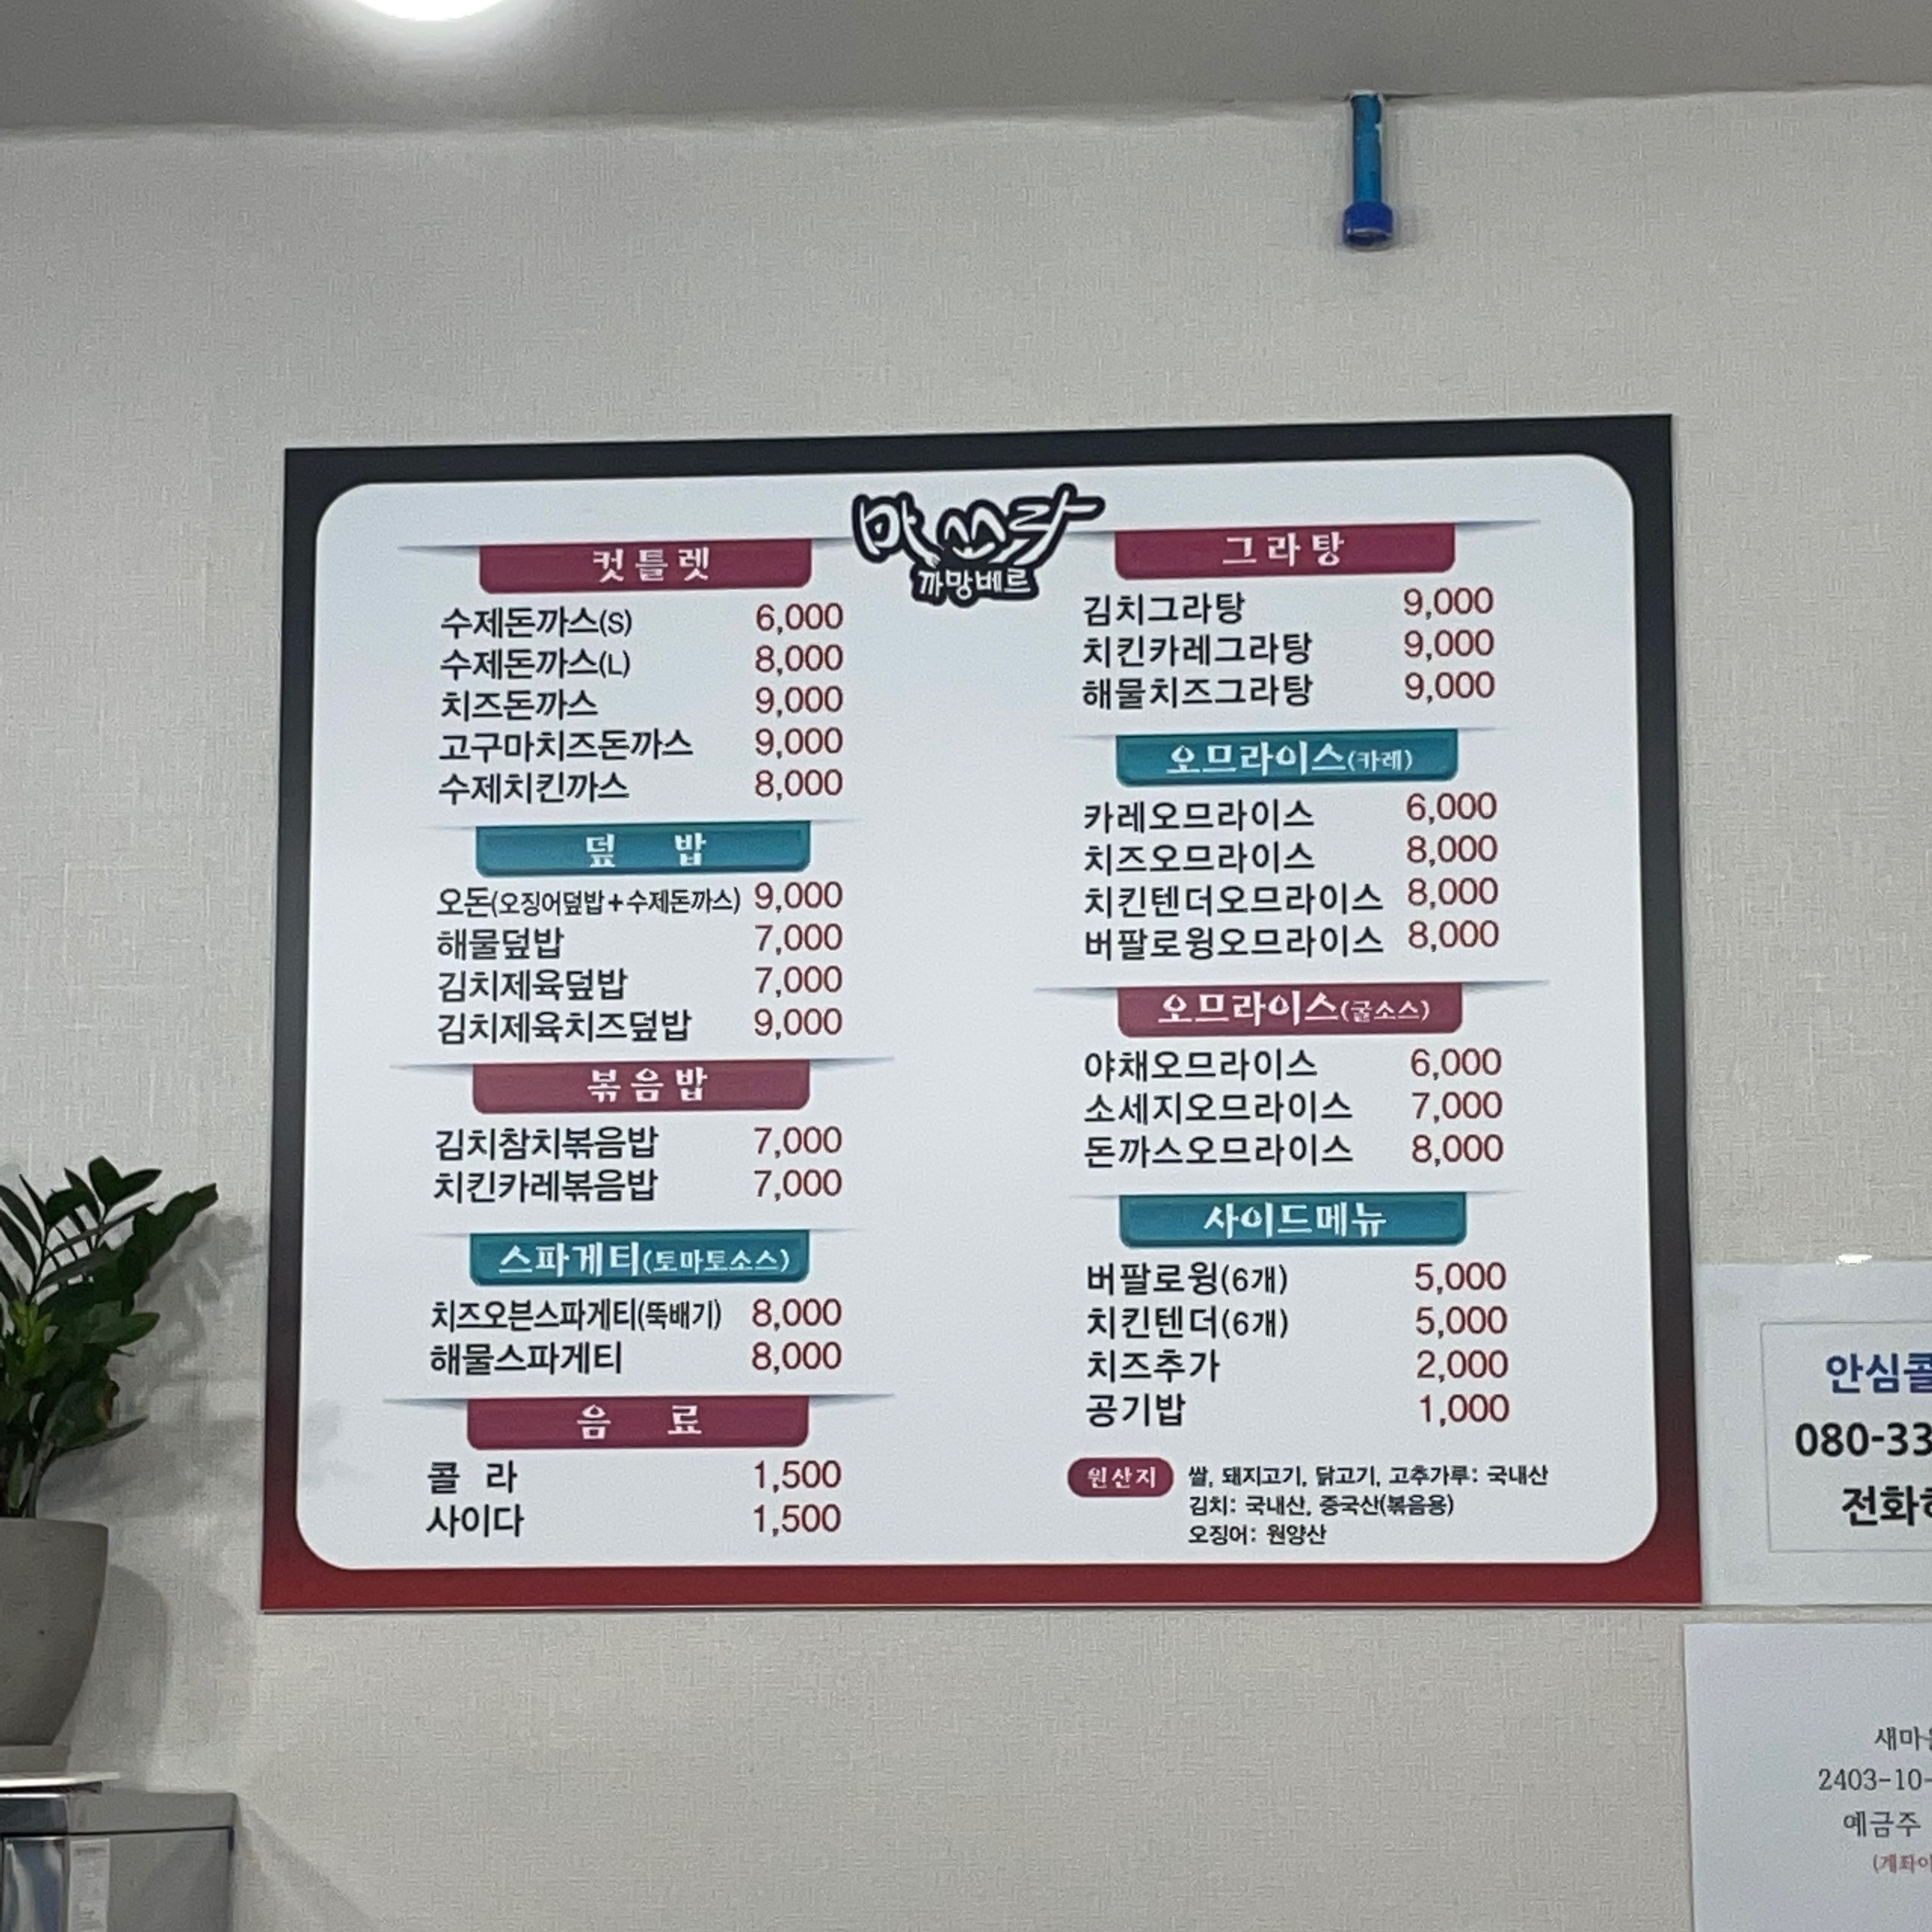 맛쓰락
까망베르
컷틀렛
수제돈까스(S) 6,000
수제돈까스(L) 8,000
치즈돈까스 9,000
고구마치즈돈까스 9,000
수제치킨까스 8,000
덮 밥
오돈(오징어덮밥+수제돈까스) 9,000
해물덮밥 7,000
김치제육덮밥 7,000
김치제육치즈덮밥 9,000
볶음밥
김치참치볶음밥 7,000
치킨카레볶음밥 7,000
스파게티(토마토소스)
치즈오븐스파게티(뚝배기) 8,000
해물스파게티 8,000
음 료
콜 라 1,500
사이다 1,500
그라탕
김치그라탕 9,000
치킨카레그라탕 9,000
해물치즈그라탕 9,000
오므라이스(카레)
카레오므라이스 6,000
치즈오므라이스 8,000
치킨텐더오므라이스 8,000
버팔로윙오므라이스 8,000
오므라이스(굴소스)
야채오므라이스 6,000
소세지오므라이스 7,000
돈까스오므라이스 8,000
사이드메뉴
버팔로윙(6개) 5,000
치킨텐더(6개) 5,000
치즈추가 2,000
공기밥 1,000
원산지 쌀, 돼지고기, 닭고기, 고추가루: 국내산
김치: 국내산, 중국산(볶음용)
오징어: 원양산
안심콜
080-33
전화
새마
2403-10-
예금주
(계좌이